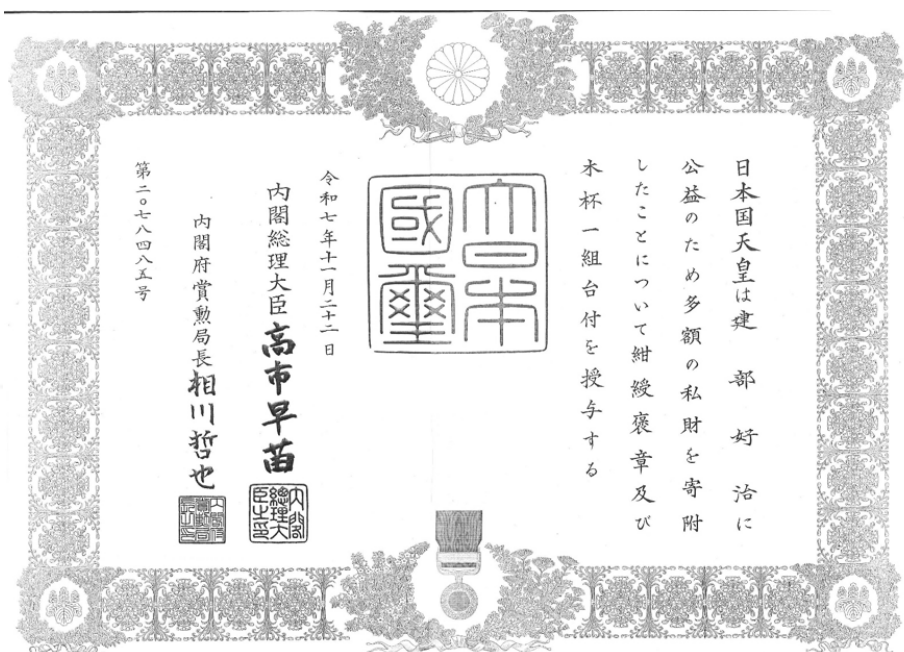 日本国天皇は建部好治に
公益のため多額の私財を寄附
したことについて紺綬褒章及び
木杯一組台付を授与する
大日本
國璽
令和七年十一月二十二日
内閣総理大臣高市早苗
内閣
總理大
臣之印
内閣府賞勲局長相川哲也
内閣府
賞勲局
長之印
第二〇七八四八五号